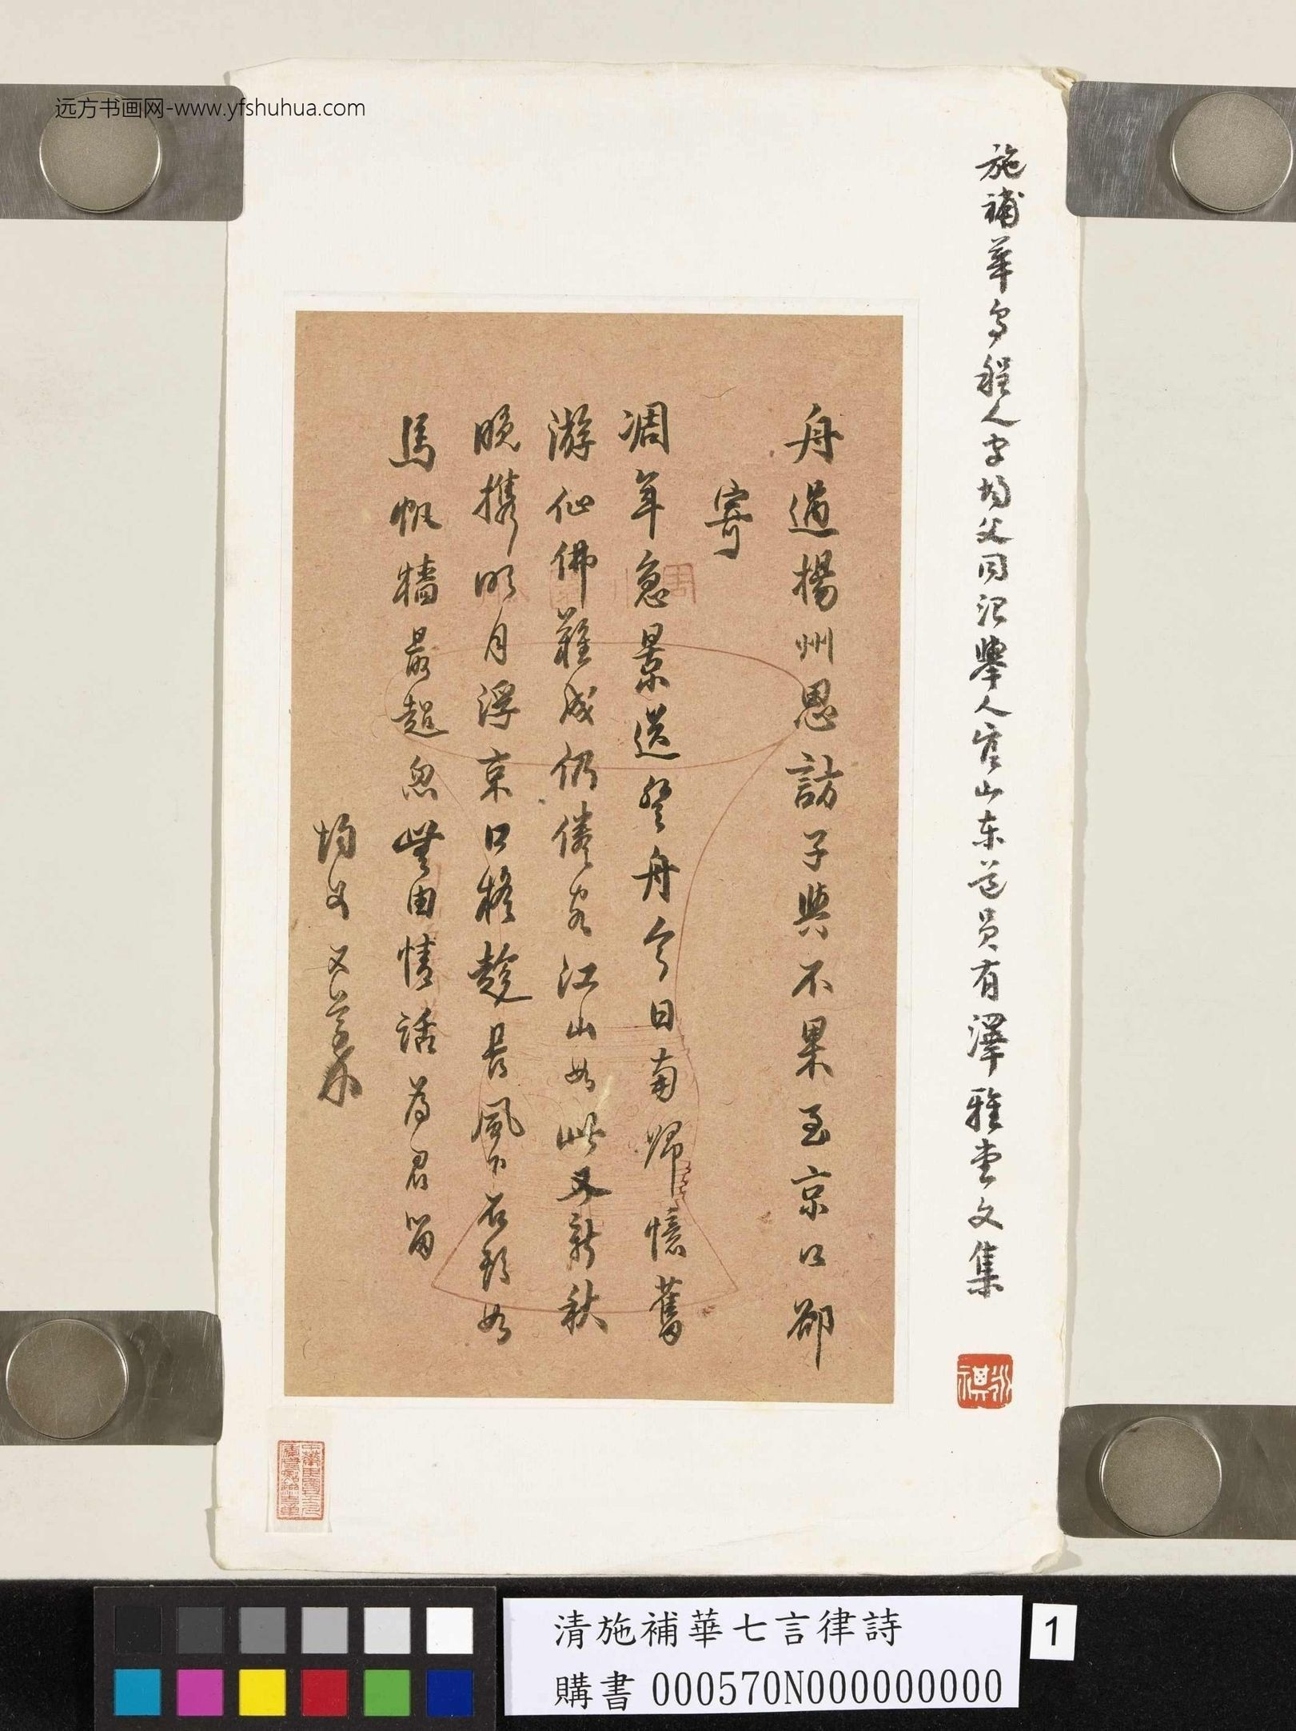 远方书画网-www.yfshuhua.com
施補華烏程人字均父同治舉人官山东道員有澤雅堂文集
舟過楊州思訪子與不果至京口卻
寄
凋年急景送登舟今日南歸憶舊
游仙佛難成仍倦客江山如此又新秋
晚携明月浮京口
長風下石頭如
馬帆檣最超忽無由情話為君留
均父
清施補華七言律詩
購書 000570N000000000
1